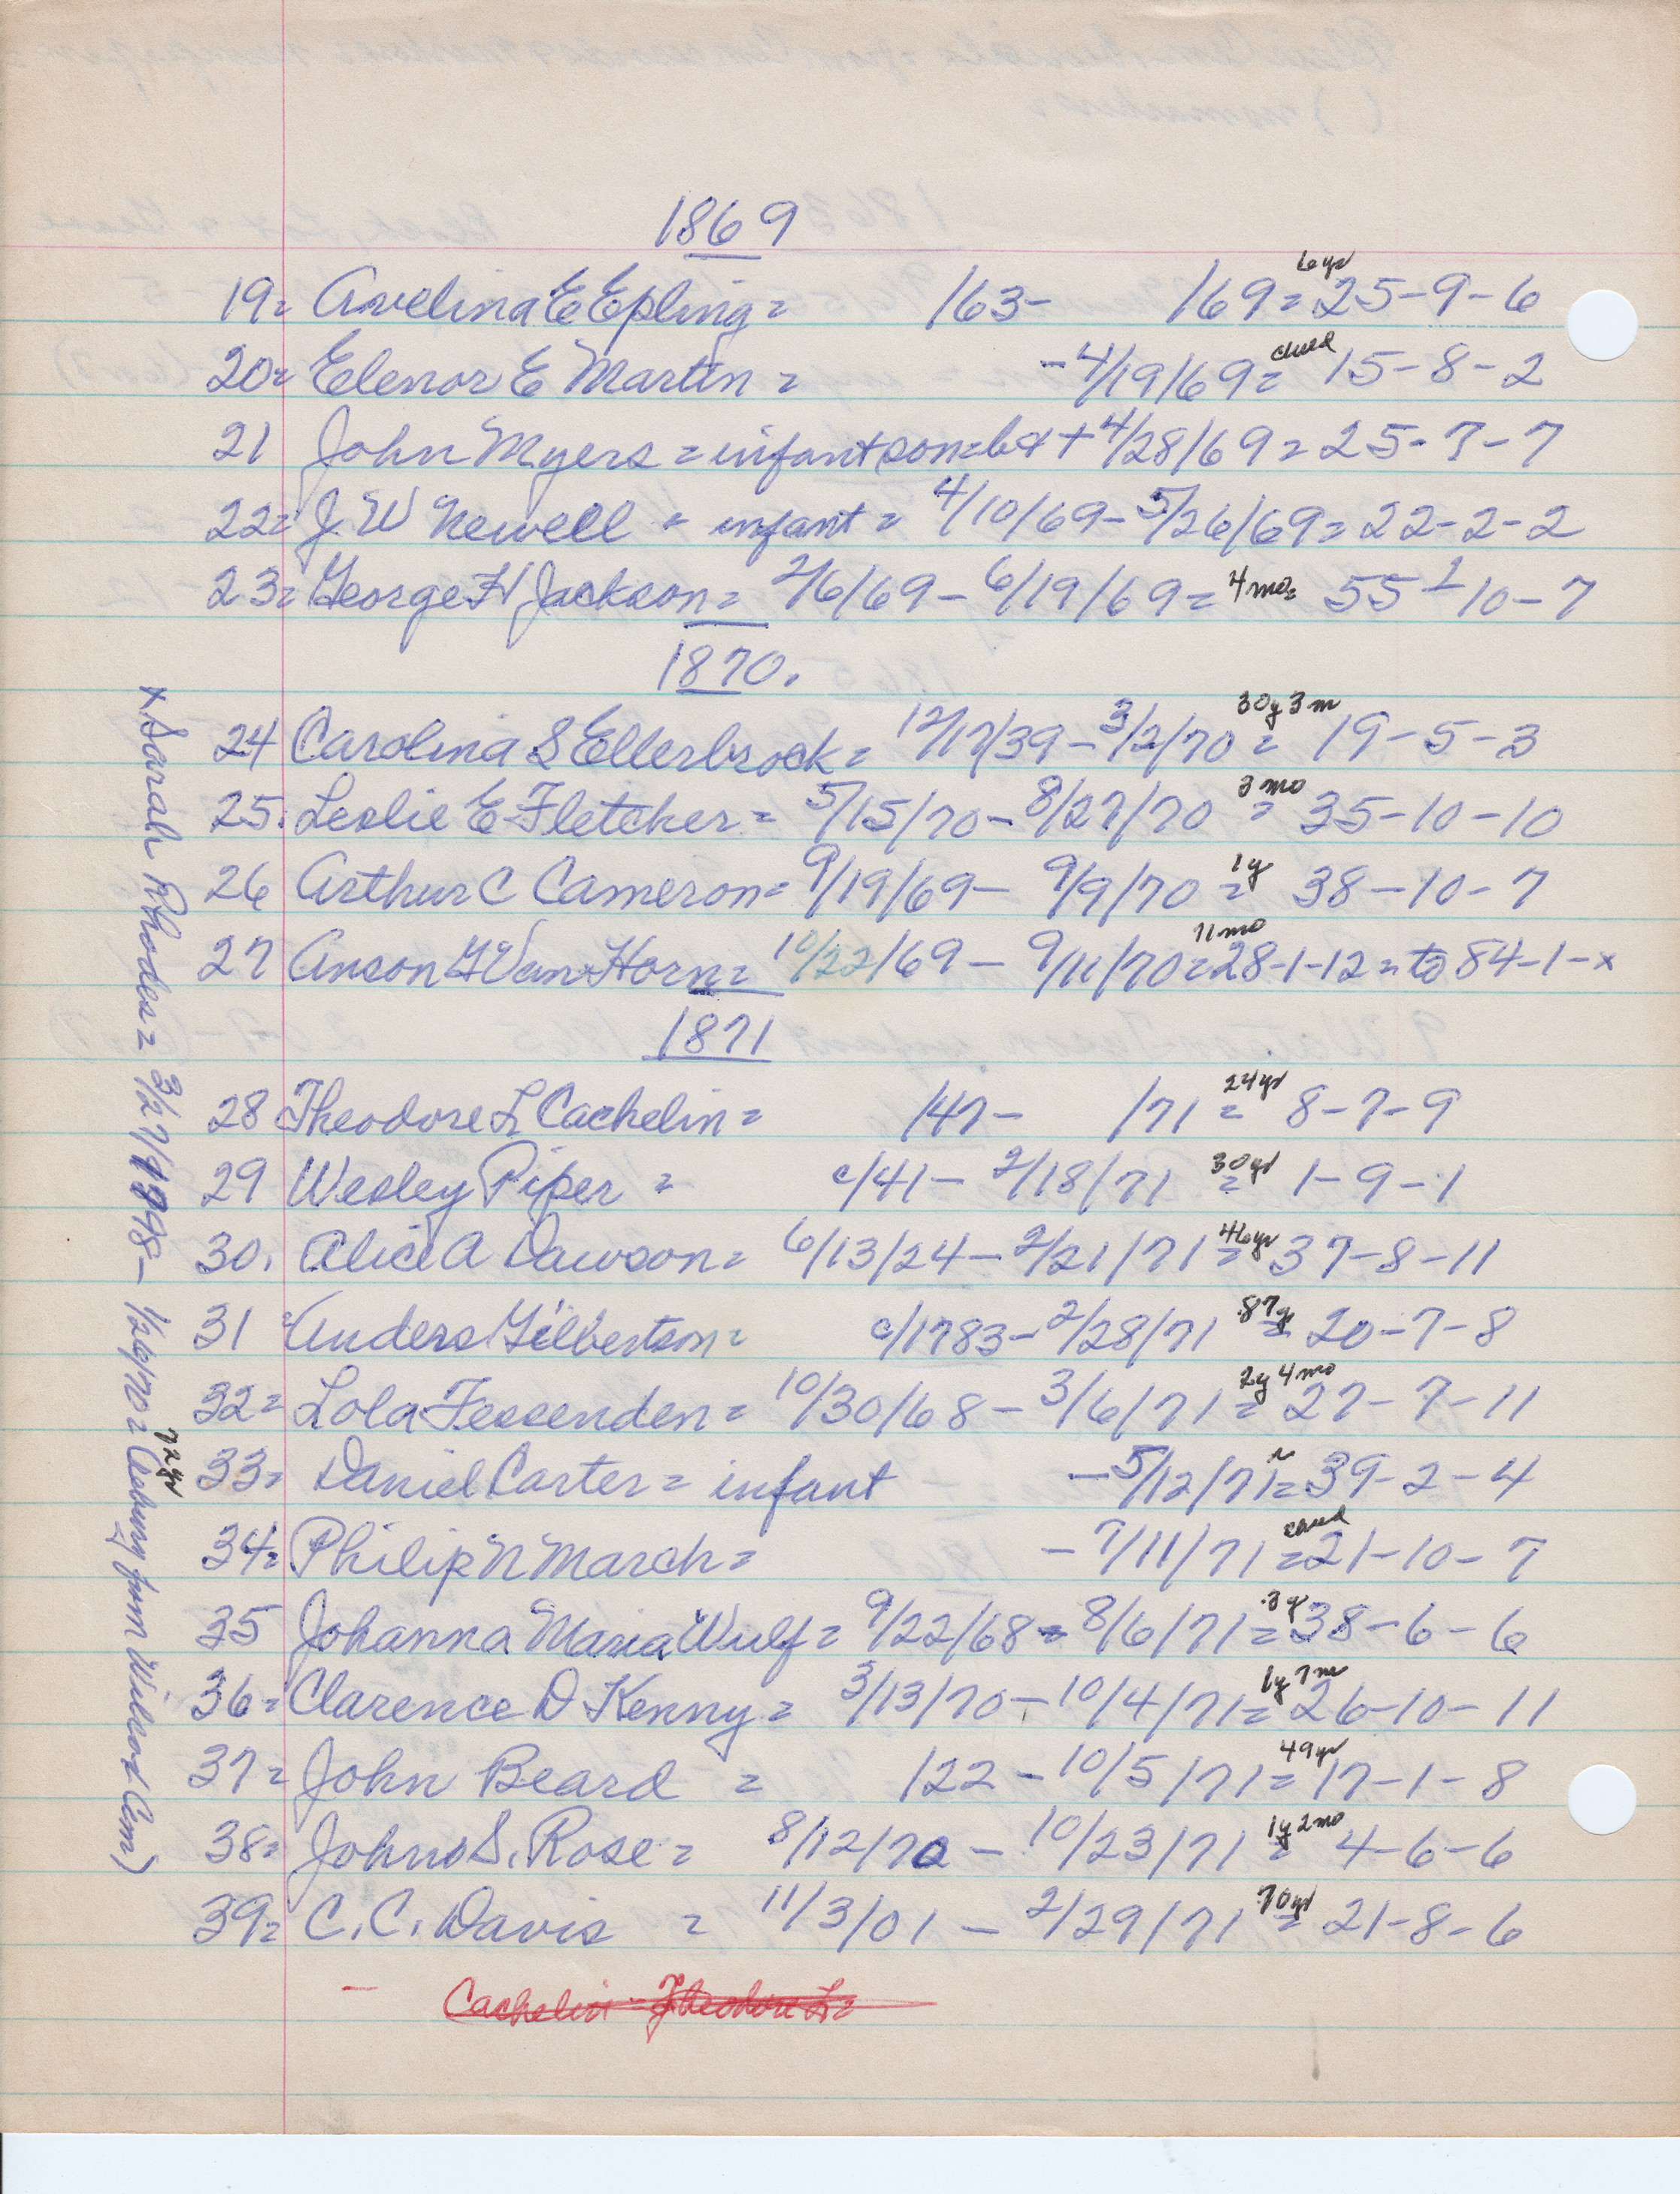 1869
19= Avelina E Epling = /63- /69 = 6yr 25-9-6
20= Elenor E Martin = -4/19/69 = child 15-8-2
21 John Myers = infant son = b&+ 4/28/69 = 25-7-7
22= J. W Newell = infant = 4/10/69-5/26/69=22-2-2
23= George H Jackson = 2/6/69-6/19/69= 4mo= 55-10-7
1870.
24 Carolina S Ellerbrock= 12/17/39-3/2/70 = 30y 3m 19-5-3
25. Leslie E Fletcher = 5/15/70-8/27/70 = 3 mo 35-10-10
26 Arthur C Cameron= 9/19/69- 9/9/70 = 1y 38-10-7
27 Anson G Van Horn= 10/22/69 - 9/11/70= 11mo 28-1-12 = to 84-1-x
1871
28 Theodore L Cachelin = /47- /71 = 24yr 8-7-9
29 Wesley Piper = c/41- 2/18/71 = 30yr 1-9-1
30. Alice A Dawson= 6/13/24-2/21/71 = 46yr 37-8-11
31 Anders Gilbertson= c/1783-2/28/71 = 87y 20-7-8
32= Lola Fessenden= 10/30/68-3/6/71 = 2y 4mo 27-7-11
33= Daniel Carter = infant -5/12/71=39-2-4
34= Philip N March= -7/11/71 = child 21-10-7
35 Johanna Maria Wulf= 9/22/68-8/6/71 = 3y 38-6-6
36= Clarence D Kenny= 3/13/70-10/4/71= 1y 7m 26-10-11
37= John Beard = /22-10/5/71= 49yr 17-1-8
38= John S. Rose= 8/12/70-10/23/71 = 1y 2mo 4-6-6
39= C. C. Davis = 11/3/01-2/29/71 = 70yr 21-8-6
- Cachelin - Theodore L=
x Sarah Rhodes= 3/27/1798-1/26/70= 72yr from Wilrod Cem)